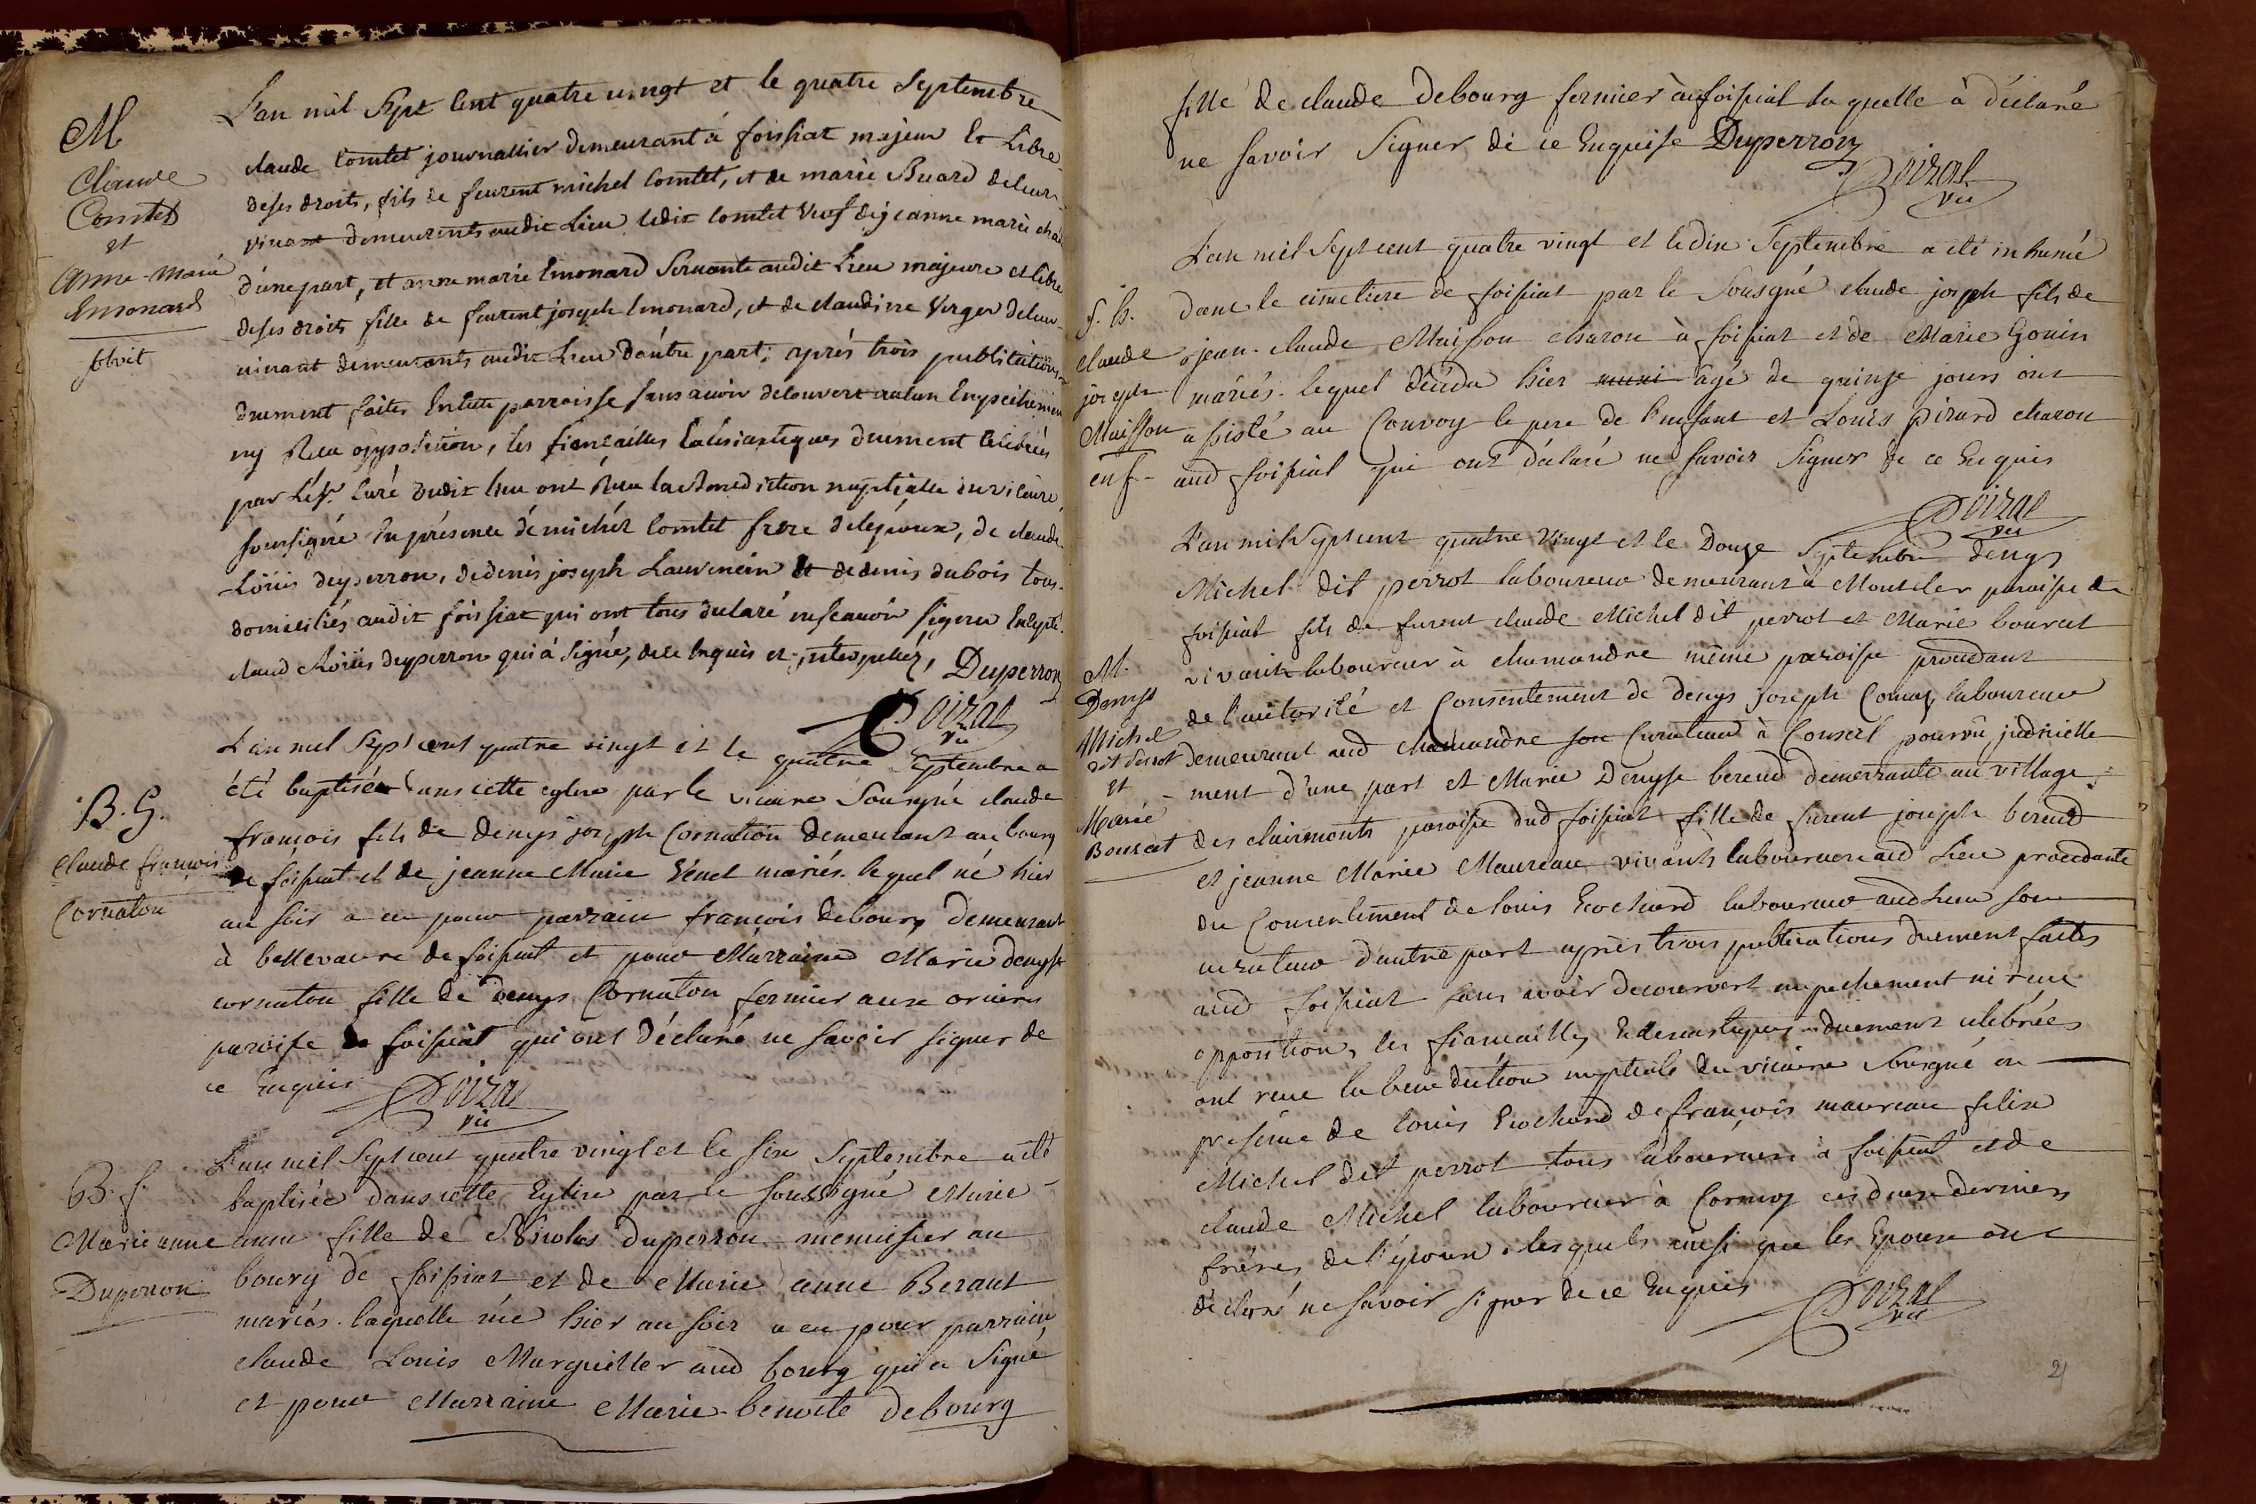 M
Claude
Comtet
et
Anne-Marie
Emonard
solvit
L'an mil sept cent quatre vingt et le quatre septembre
claude Comtet journallier demeurant à foissiat majeur et Libre
deses droits, fils de feurent michel Comtet, et de marie Buard deleur
vivant demeurents audit Lieu ledit Comtet veuf dejeanne marie
d'une part, et anne marie Emonard servante audit Lieu majeure et libre
deses droits fille de feurent joseph Emonard, et de claudine Verger deleur
vivant demeurants audit Lieu d'autre part; après trois publications
duement faites En cette parroisse sans avoir découvert aucun Empechemen
ny Reçu opposition, les fiençailles Eclésiastiques duement Célébrées
par le sr. Curé dudit lieu ont Reçu la Bénédiction nuptialle du vicaire
soussigné En présence de michel Comtet frere delepoux, de claude
Loüis duperron, dedenis joseph Lauvencin et dedenis dubois tous
domiciliés audit foissiat qui ont tous déclaré nesçavoir signer Excepté
claud Loüis duperron qui à signé, dece Enquis et interpellez, Duperron
Poizat
vic
B. G.
claude françois
Cornaton
L'an mil sept cent quatre vingt et le quatre septembre a
été baptisé dans cette eglise par le vicaire sousigné claude
françois fils de denys joseph Cornaton demeurant au bourg
de foissiat et de jeanne Marie Venet mariés. lequel né hier
au soir a eu pour parrain françois debourg demeurant
à bellevavre de foissiat et pour Marraine Marie denyse
cornaton fille de denys Cornaton fermier aux oriers
paroisse de foissiat qui ont déclaré ne savoir signer de
ce Enquis Poizat
vic
B. f.
Marie anne
Duperron
L'an mil sept cent quatre vingt et le six septembre a été
baptisée dans cette Eglise par le soussigné Marie
anne fille de Nicolas Duperron menuisier au
bourg de foissiat et de Marie anne Beraut
mariés. laquelle née hier au soir a eu pour parrain
claude Louis Marguiller aud bourg qui a signé
et pour Marraine Marie-benoite debourg
fille de claude Debourg fermier à foissiat la quelle à déclaré
ne savoir signer de ce Enquise Duperron
Poizat
vic
S. G.
claude
joseph
Maisson
enf-
L'an mil sept cent quatre vingt et le dix septembre a été inhumé
dans le cimetiere de foissiat par le sousigné claude joseph fils de
jean-claude Maisson charon à foissiat et de Marie Gonin
mariés. lequel décéda hier agé de quinze jours ont
assisté au Convoy le pere de l'enfant et Louis pirard charon
aud foissiat qui ont déclaré ne savoir signer de ce Enquis
Poizat
vic
M.
Denys
Michel
dit Perrot
et
Marie
Bourcet
L'an mil sept cent quatre vingt et le Douze septembre denys
Michel dit perrot laboureur demeurant à Montcler paroisse de
foissiat fils de furent claude Michel dit perrot et Marie bourcet
vivants laboureur à chamandre même paroisse procedant
de l'autorité et Consentement de denys joseph Comas laboureur
demeurant aud chamandre son Curateur à Conseil pourvû judicielle
ment d'une part et Marie Denyse bereud demeurante au village
des clairmonts paroisse dud foissiat fille de furent joseph bereud
et jeanne Marie Maureau vivants laboureurs aud Lieu procedante
du Consentement de louis Brochard laboureur aud Lieu son
curateur d'autre part après trois publications duement faites
aud foissiat sans avoir decouvert empechement ni reçu
opposition, les fiancailles Eclesiastiques duement célebrées
ont reçu la benediction nuptiale du vicaire sousigné en
presence de louis Brochard de françois maureau felix
Michel dit perrot tous laboureurs à foissiat et de
claude Michel laboureur à Cormoz ces deux derniers
frères de l'époux. lesquels ainsi que les Epoux ont
déclaré ne savoir signer de ce Enquis Poizat
vic
2